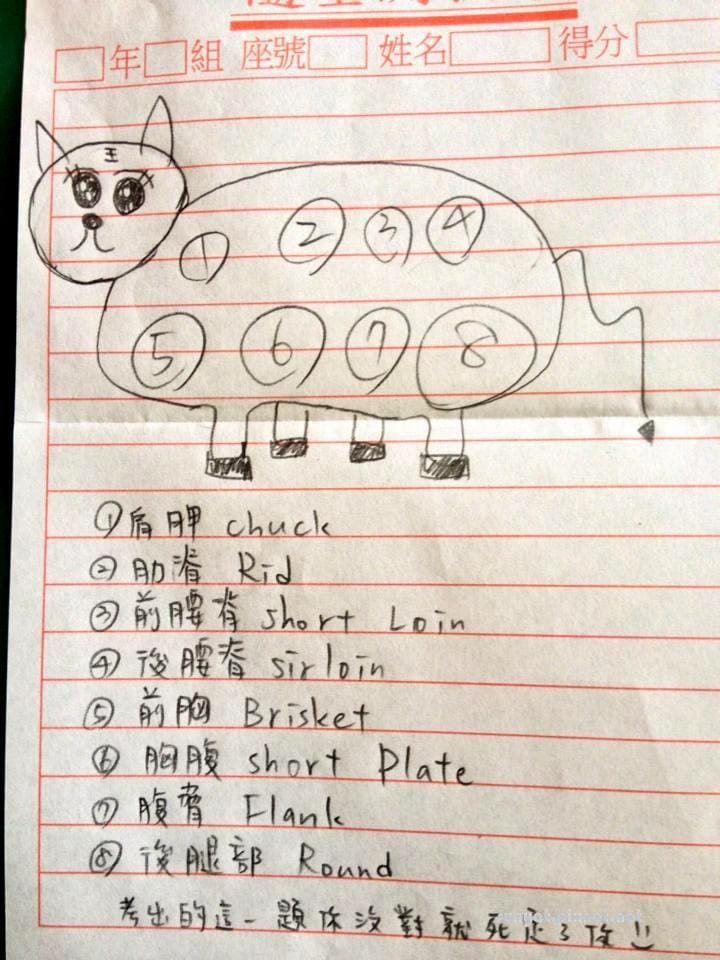 年 組 座號 姓名 得分
王
① ② ③ ④
⑤ ⑥ ⑦ ⑧
①肩胛 chuck
②肋脊 Rid
③前腰脊 short Loin
④後腰脊 sirloin
⑤前胸 Brisket
⑥胸腹 short Plate
⑦腹脅 Flank
⑧後腿部 Round
考出的這一題你沒對就死定了你!!